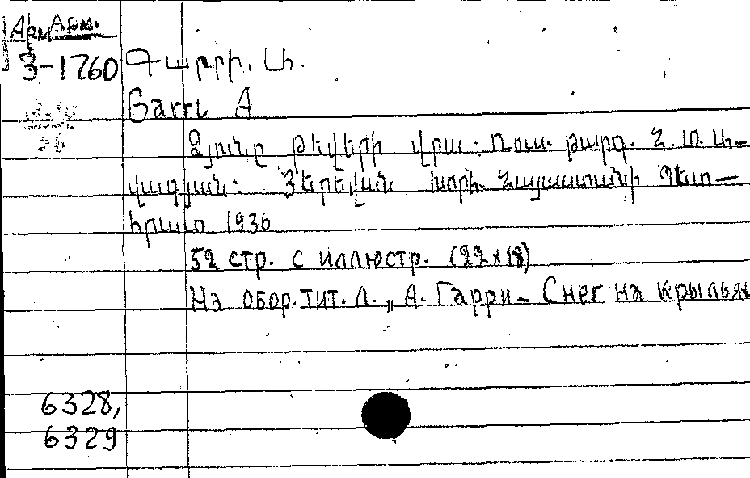 Арм Арм.
3-1760
Գարրի. Ա.
Garri A
Ձյունը թեվերի վրա: Ռուս. թարգ. Հ. Մ. Ա-
վագյան: Յերեվան խորհ. Հայաստանի Պետ-
հրատ 1936
52 стр. с иллюстр. (22x18)
На обор. тит. л. „А. Гарри - Снег на крыльях
6328,
6329